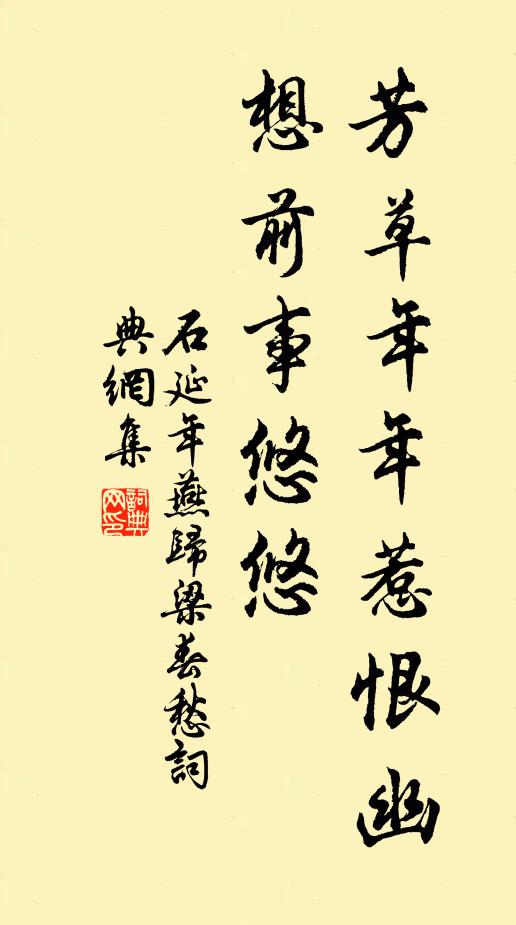 芳草年年惹恨幽
想前事悠悠
石延年燕歸梁春愁詞
典網集
詞典
网印